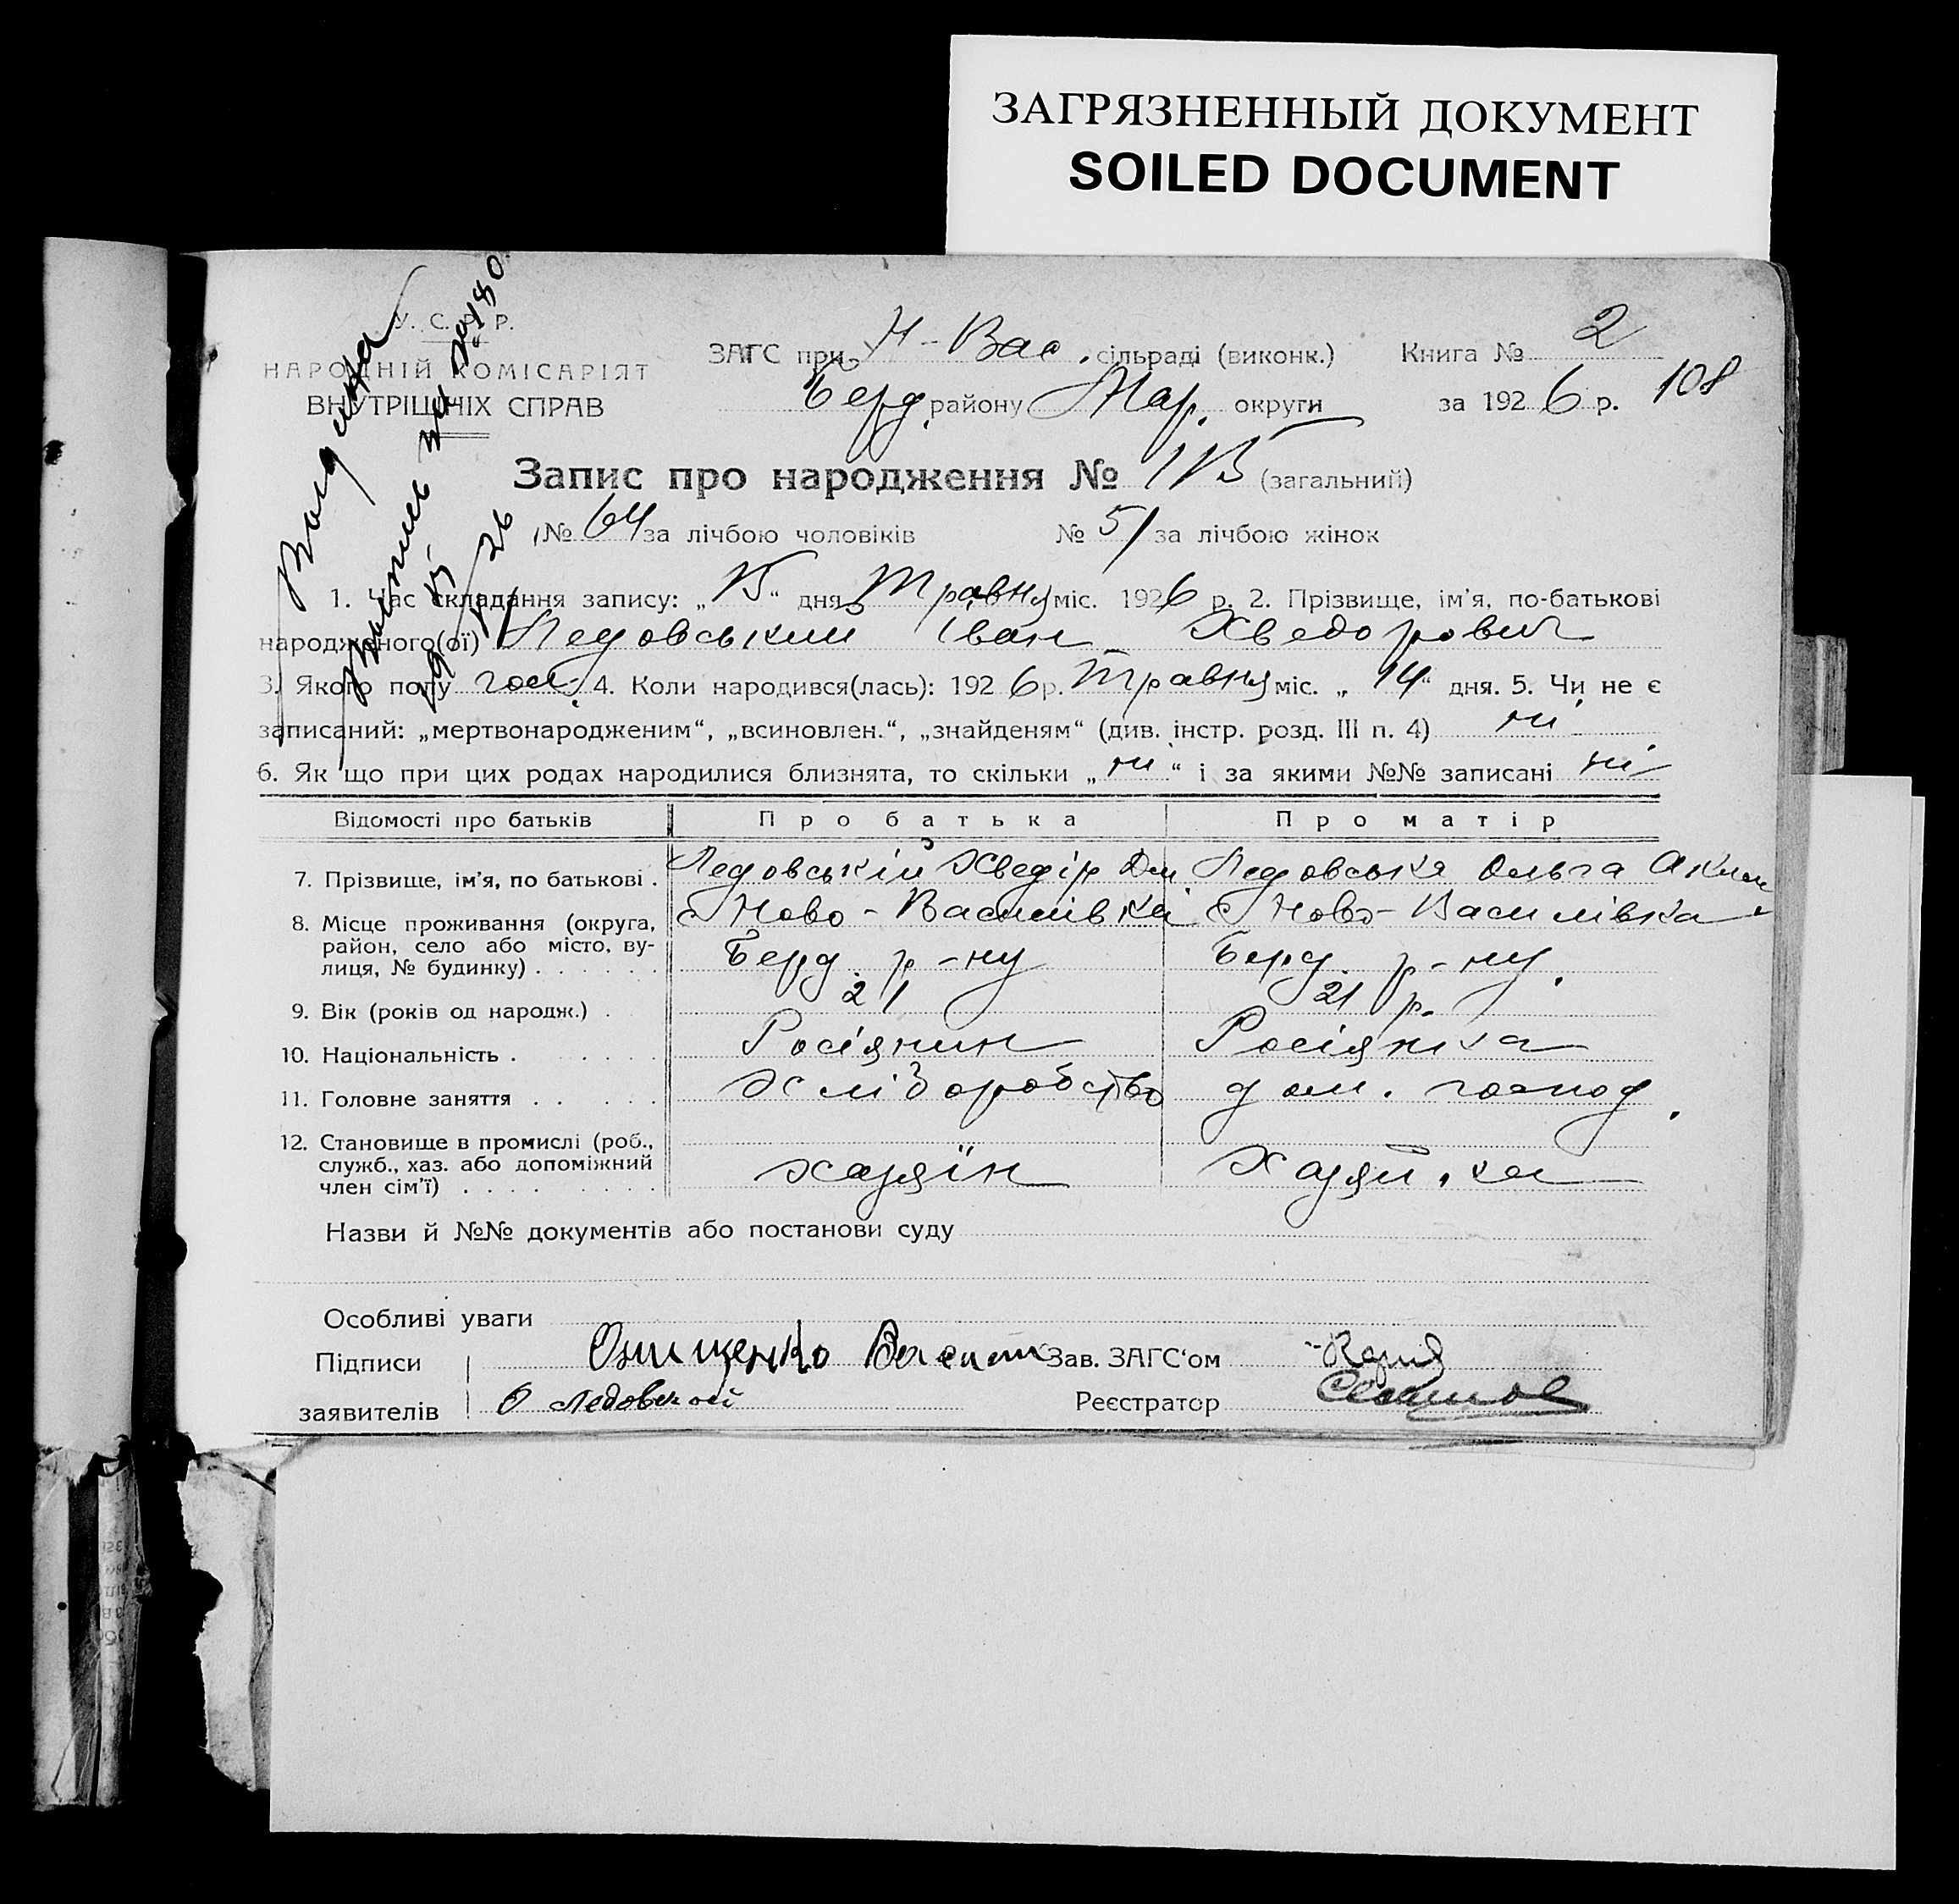 ЗАГРЯЗНЕННЫЙ ДОКУМЕНТ
SOILED DOCUMENT
У. С. Р. Р.
НАРОДНІЙ КОМІСАРІЯТ
ВНУТРІШНІХ СПРАВ
ЗАГС при Н-Вас. сільраді (виконк.) Книга № 2
Берд. району Мар. округи за 1926 р. 108
Запис про народження № 115 (загальний)
№ 64 за лічбою чоловіків № 51 за лічбою жінок
1. Час складання запису: „15“ дня Травня міс. 1926 р. 2. Прізвище, ім'я, по-батькові
народженого(ої) Ледовський Іван Хведорович
3. Якого полу чол. 4. Коли народився(лась): 1926 р. Травня міс. „14“ дня. 5. Чи не є
записаний: „мертвонародженим“, „всиновлен.“, „знайденям“ (див. інстр. розд. III п. 4) ні
6. Як що при цих родах народилися близнята, то скільки „ні“ і за якими №№ записані ні
Відомості про батьків Про батька Про матір
7. Прізвище, ім'я, по батькові . Ледовській Хведір Дм. Ледовська Ольга Аким
8. Місце проживання (округа, с Ново-Василівка с Ново-Василівка
район, село або місто, ву-
лиця, № будинку) . . . . . . Берд. р-ну Берд. р-ну.
9. Вік (років од народж.) . 21 21 р.
10. Національність . Росіянин Росіянка
11. Головне заняття . . Хліборобство дом. господ.
12. Становище в промислі (роб.,
служб., хаз. або допоміжний хазяїн Хазяй.ка
член сім'ї) . . . .
Назви й №№ документів або постанови суду
Особливі уваги
Підписи Онищенко Зав. ЗАГС'ом
заявителів О Ледовской Реєстратор